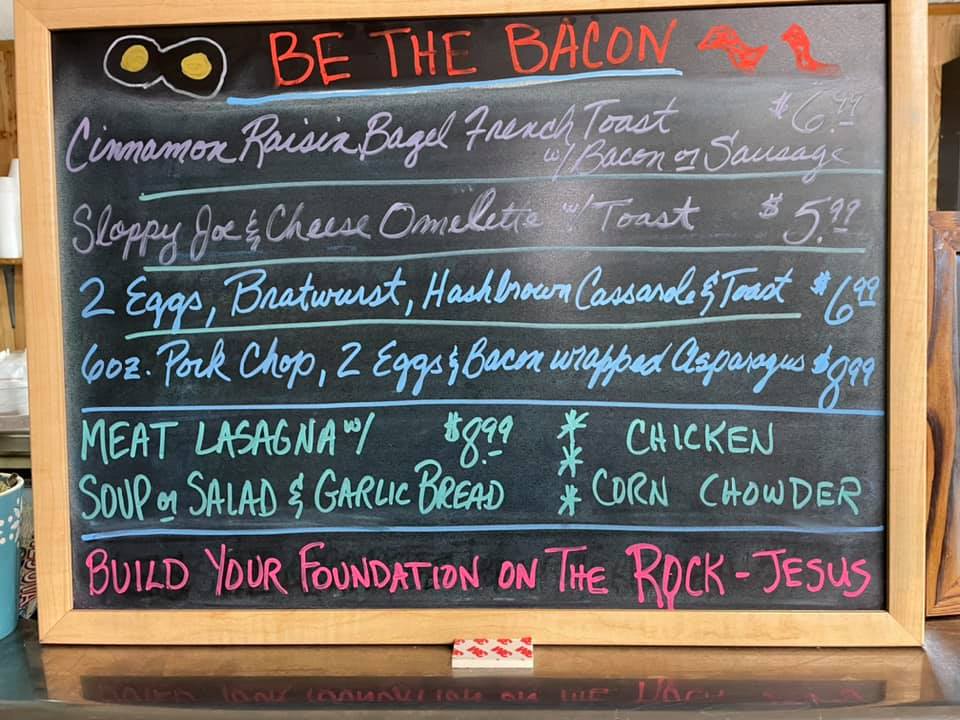 BE THE BACON
Cinnamon Raisin Bagel French Toast $6.99
w/ Bacon or Sausage
Sloppy Joe & Cheese Omelette w/ Toast $5.99
2 Eggs, Bratwurst, Hashbrown Cassarole & Toast $6.99
6oz. Pork Chop, 2 Eggs & Bacon wrapped Asparagus $8.99
MEAT LASAGNA w/ $8.99
SOUP or SALAD & GARLIC BREAD
* CHICKEN
*
* CORN CHOWDER
BUILD YOUR FOUNDATION ON THE ROCK - JESUS